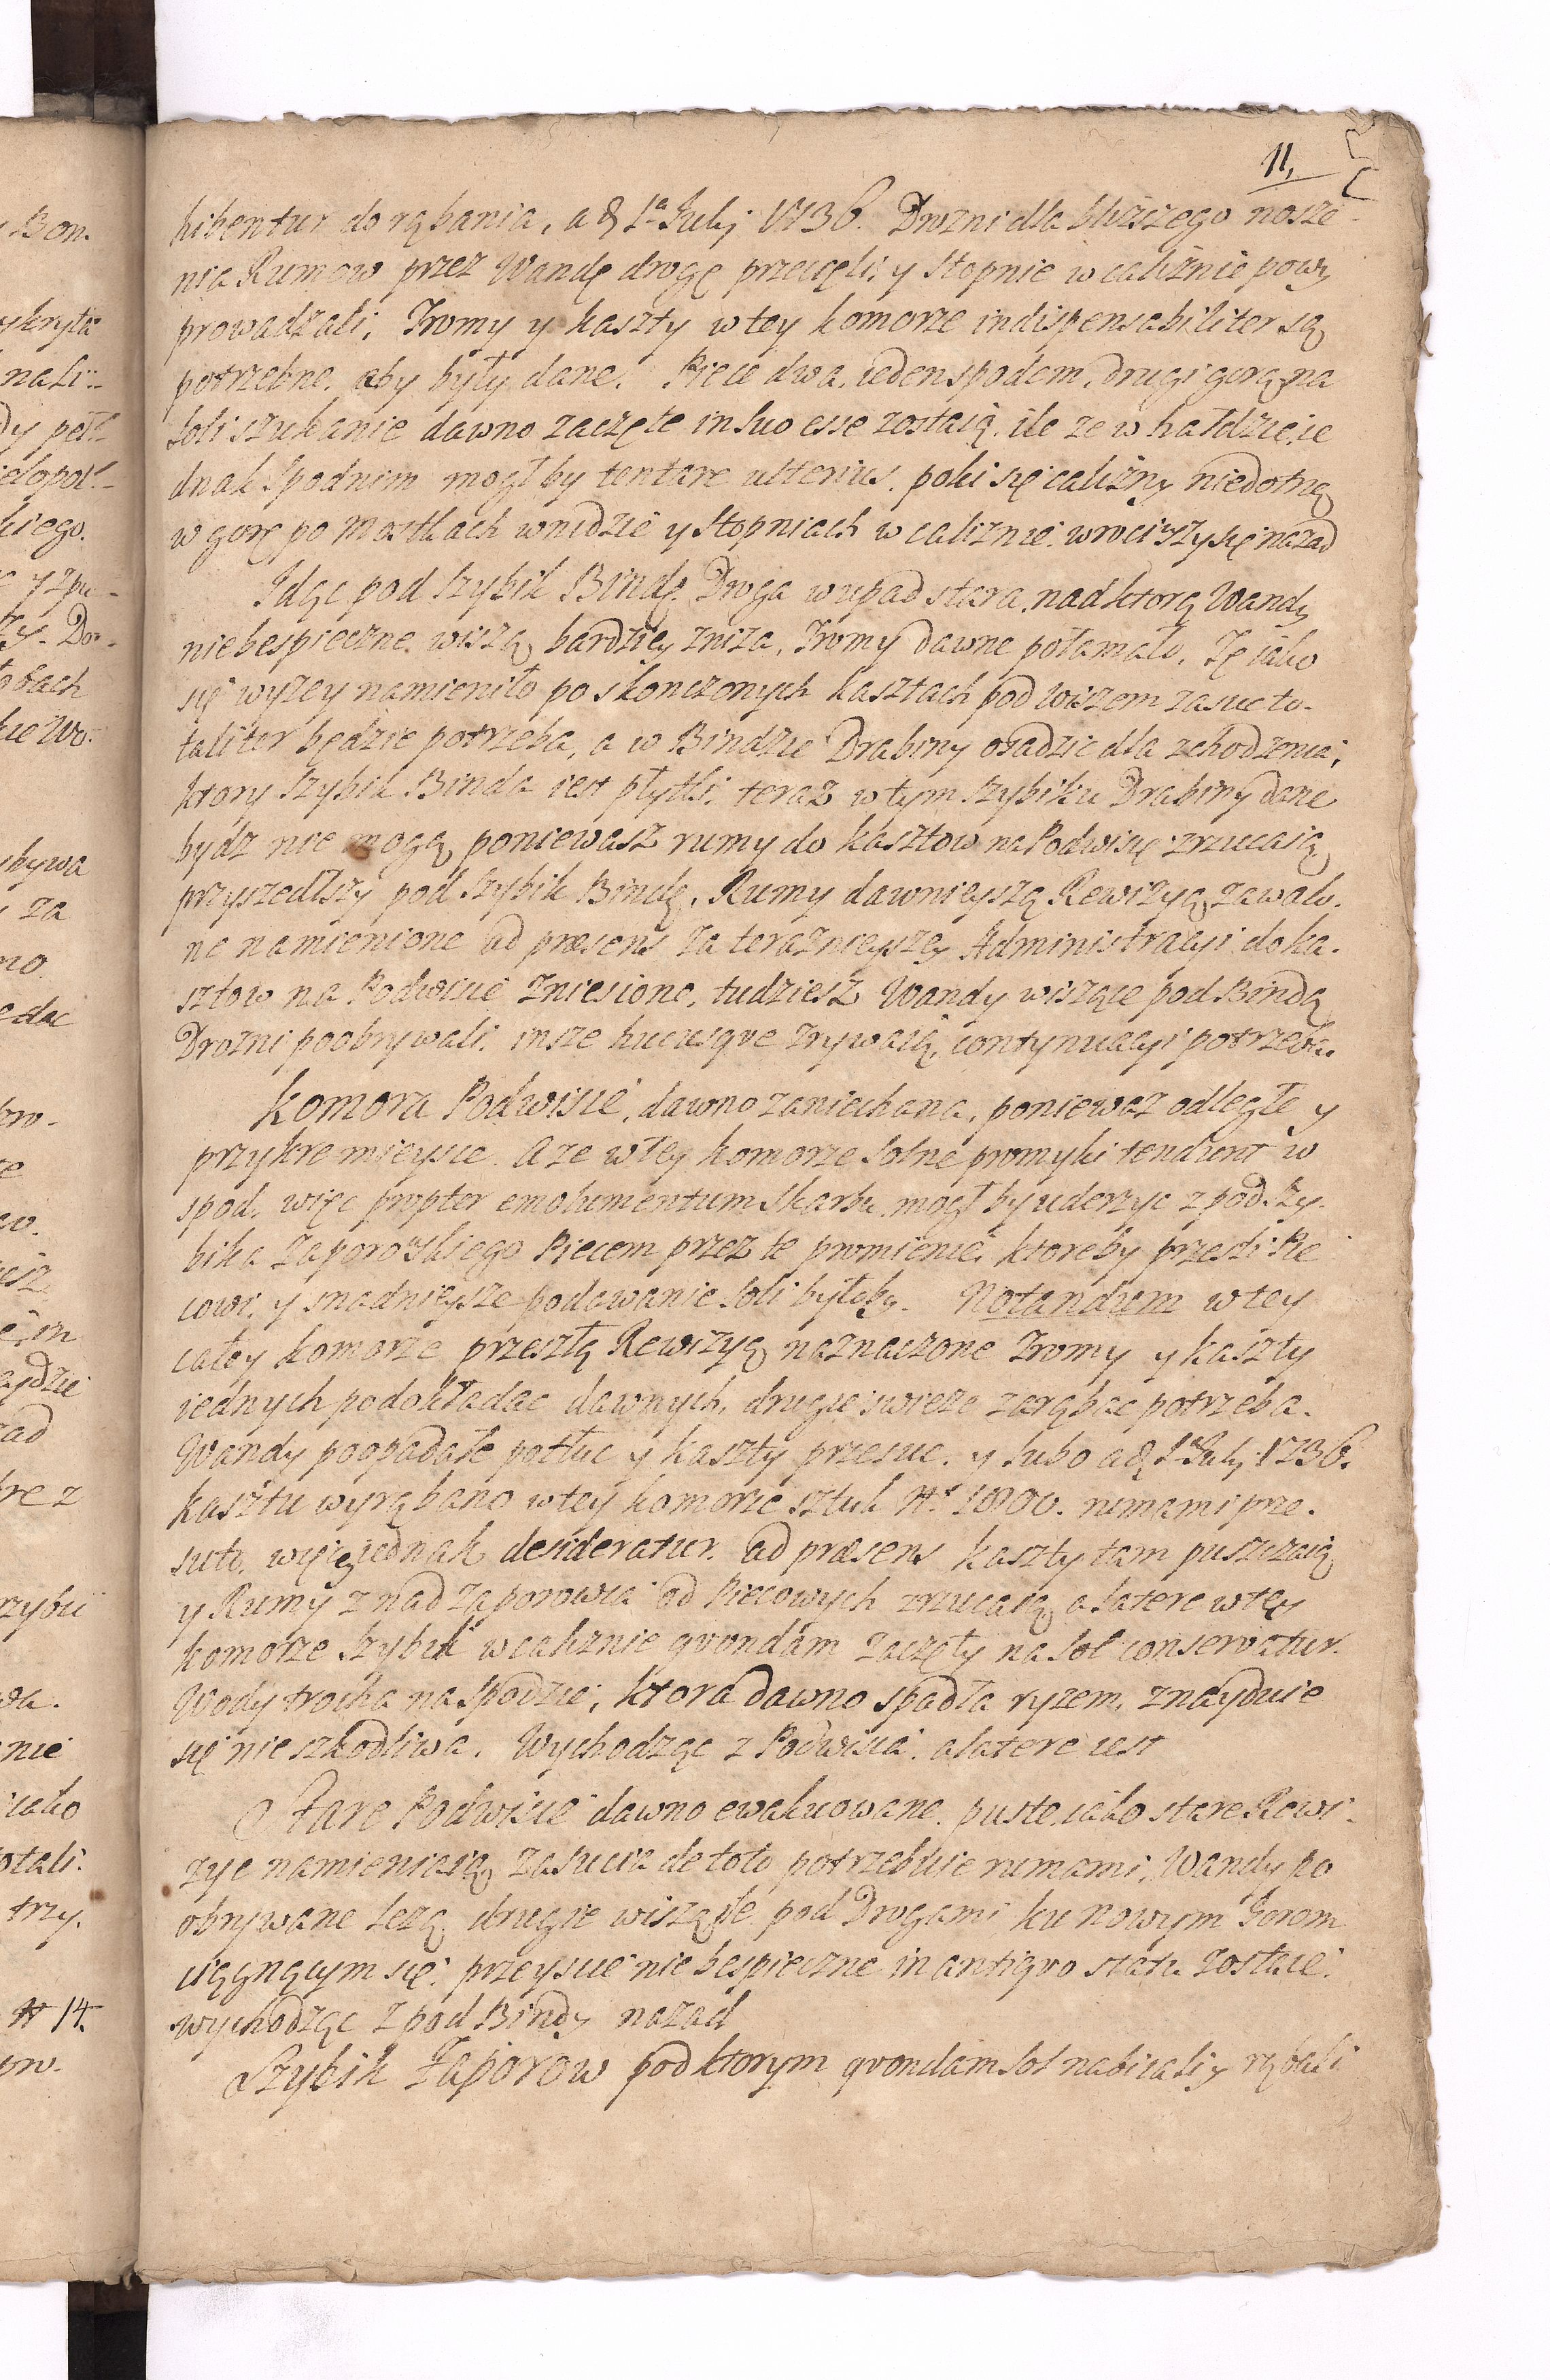 11.
hibentur do rąbania, a d 1ª Julij 1736. Drozni dla bliższego nosze-
nia Rumow przez Wandę drogę przecięli, y Stopnie w caliznie powy
prowadzali, Tromy y kaszty w tey komorze indispensabiliter są
potrzebne, aby były dane. Piece dwa, ieden spodem, drugi gorą, na
soli szukanie dawno zaczęte in suo esse zostaią, ile ze w hałdzie, ie
dnak Spodnim mogł by tentare ulterius, poki się calizny niedotną
w gorę po Mostkach wnidzie y Stopniach w caliznie. wrociwszy się nazad
Idąc pod Szybik Bindę. Droga w upad stara, nad ktorą Wandy
niebespieczne wiszą, bardziey zniza, Tromy dawne połamało, Tę iako
się wyzey namieniło po skonczonych kasztach pod wiszem zasuć to-
taliter będzie potrzeba, a w Bindzie Drabiny osadzic dla zchodzenia,
ktory Szybik Binda iest płytki, teraz w tym szybiku Drabiny dane
bydz nie mogą, poniewasz rumy do kasztow na Podwisię zrzucaią
przyszedłszy pod Szybik Bindę, Rumy dawnieyszą Rewizyą zawalo-
ne namienione ad præsens za teraznieyszey Administracyi do ka-
sztow na Podwisię zniesione, tudziesz Wandy wiszące pod Bindą
Drozni poobrywali, insze hucusqve zrywaią, contynuacyi potrzeba
Komora Podwisie, dawno zaniechana, poniewaz odległe y
przykre mieysce. A ze w tey komorze solne promyki tendunt w
spod, więc propter emolumentum Skarbu mogł by uderzyc z pod Szy-
bika Zaporowskiego Piecem przez te promienie, ktoreby przeszli Pie
cowi, y snadnieysze podawanie soli byłoby. Notandum w tey
całey komorze przeszłą Rewizyą naznaczone Tromy y kaszty
iednych podokładac dawnych, drugie swieze zarąbac potrzeba.
Wandy poopadałe potłuc y kaszty przesuc. y lubo a d 1ª Julij 1736.
kasztu wyrąbano w tey komorze sztuk Nº 1000. rumami prze-
suto, więcey jednak desideratur. ad præsens kaszty tam puszczaią
y Rumy z nad Zaporowia od Piecowych zrzucaią, a latere w tey
komorze Szybik w caliznie qvondam zaczęty na sol conservatur.
Wody trocha na Spodzie, ktora dawno spadła ryzem, znayduie
się nie szkodliwa. Wychodząc z Podwisia, a latere iest
Stare Podwisie dawno ewakuowane, puste, iako stare Rewi-
zye namieniaią, zasucia de toto potrzebuie rumami, Wandy po
obrywane lezą, drugie wiszące pod Drogami ku Nowym Gorom
ciągnącym się, przeyscie nie bespieczne in antiqvo statu zostaie.
wychodząc z pod Bindy nazad
Szybik Zaporow pod ktorym qvondam sol nabiiali y rąbali